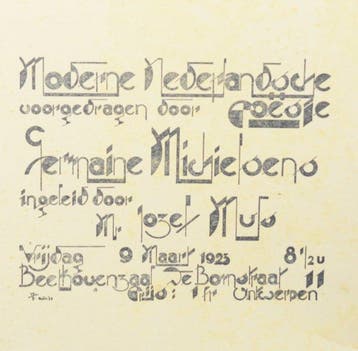 Moderne Nederlandsche
voorgedragen door Poësie
Germaine Michielsens
ingeleid door
Mr. Jozef Muls
Vrijdag 9 Maart 1923 8 1/2 u
Beethovenzaal De Bomstraat 11
Prijs: 1 fr Antwerpen